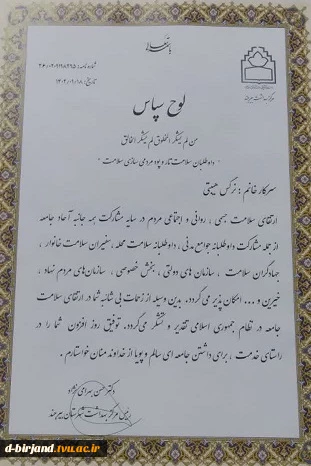 باسمه تعالی
شماره نامه:
تاریخ: ۱۴۰۲/۰۹/۱۸
لوح سپاس
من لم یشکر المخلوق لم یشکر الخالق
" داوطلبان سلامت تار و پود مردمی سازی سلامت "
سرکار خانم : نرگس هیبتی
ارتقای سلامت جسمی ، روانی و اجتماعی مردم در سایه مشارکت همه جانبه آحاد جامعه
از جمله مشارکت داوطلبانه جوامع مدنی ، داوطلبانه سلامت محله ، سفیران سلامت خانوار ،
جهادگران سلامت ، سازمان های دولتی ، بخش خصوصی ، سازمان‌های مردم نهاد ،
خیرین و ... امکان پذیر می گردد. بدین وسیله از زحمات بی شائبه شما در ارتقای سلامت
جامعه در نظام جمهوری اسلامی تقدیر و تشکر می‌گردد. توفیق روز افزون شما را در
راستای خدمت ، برای داشتن جامعه ای سالم و پویا از خداوند منان خواستارم .
دکتر حسن بهرامی نژاد
رئیس مرکز بهداشت شهرستان بیرجند
d-birjand.tvu.ac.ir